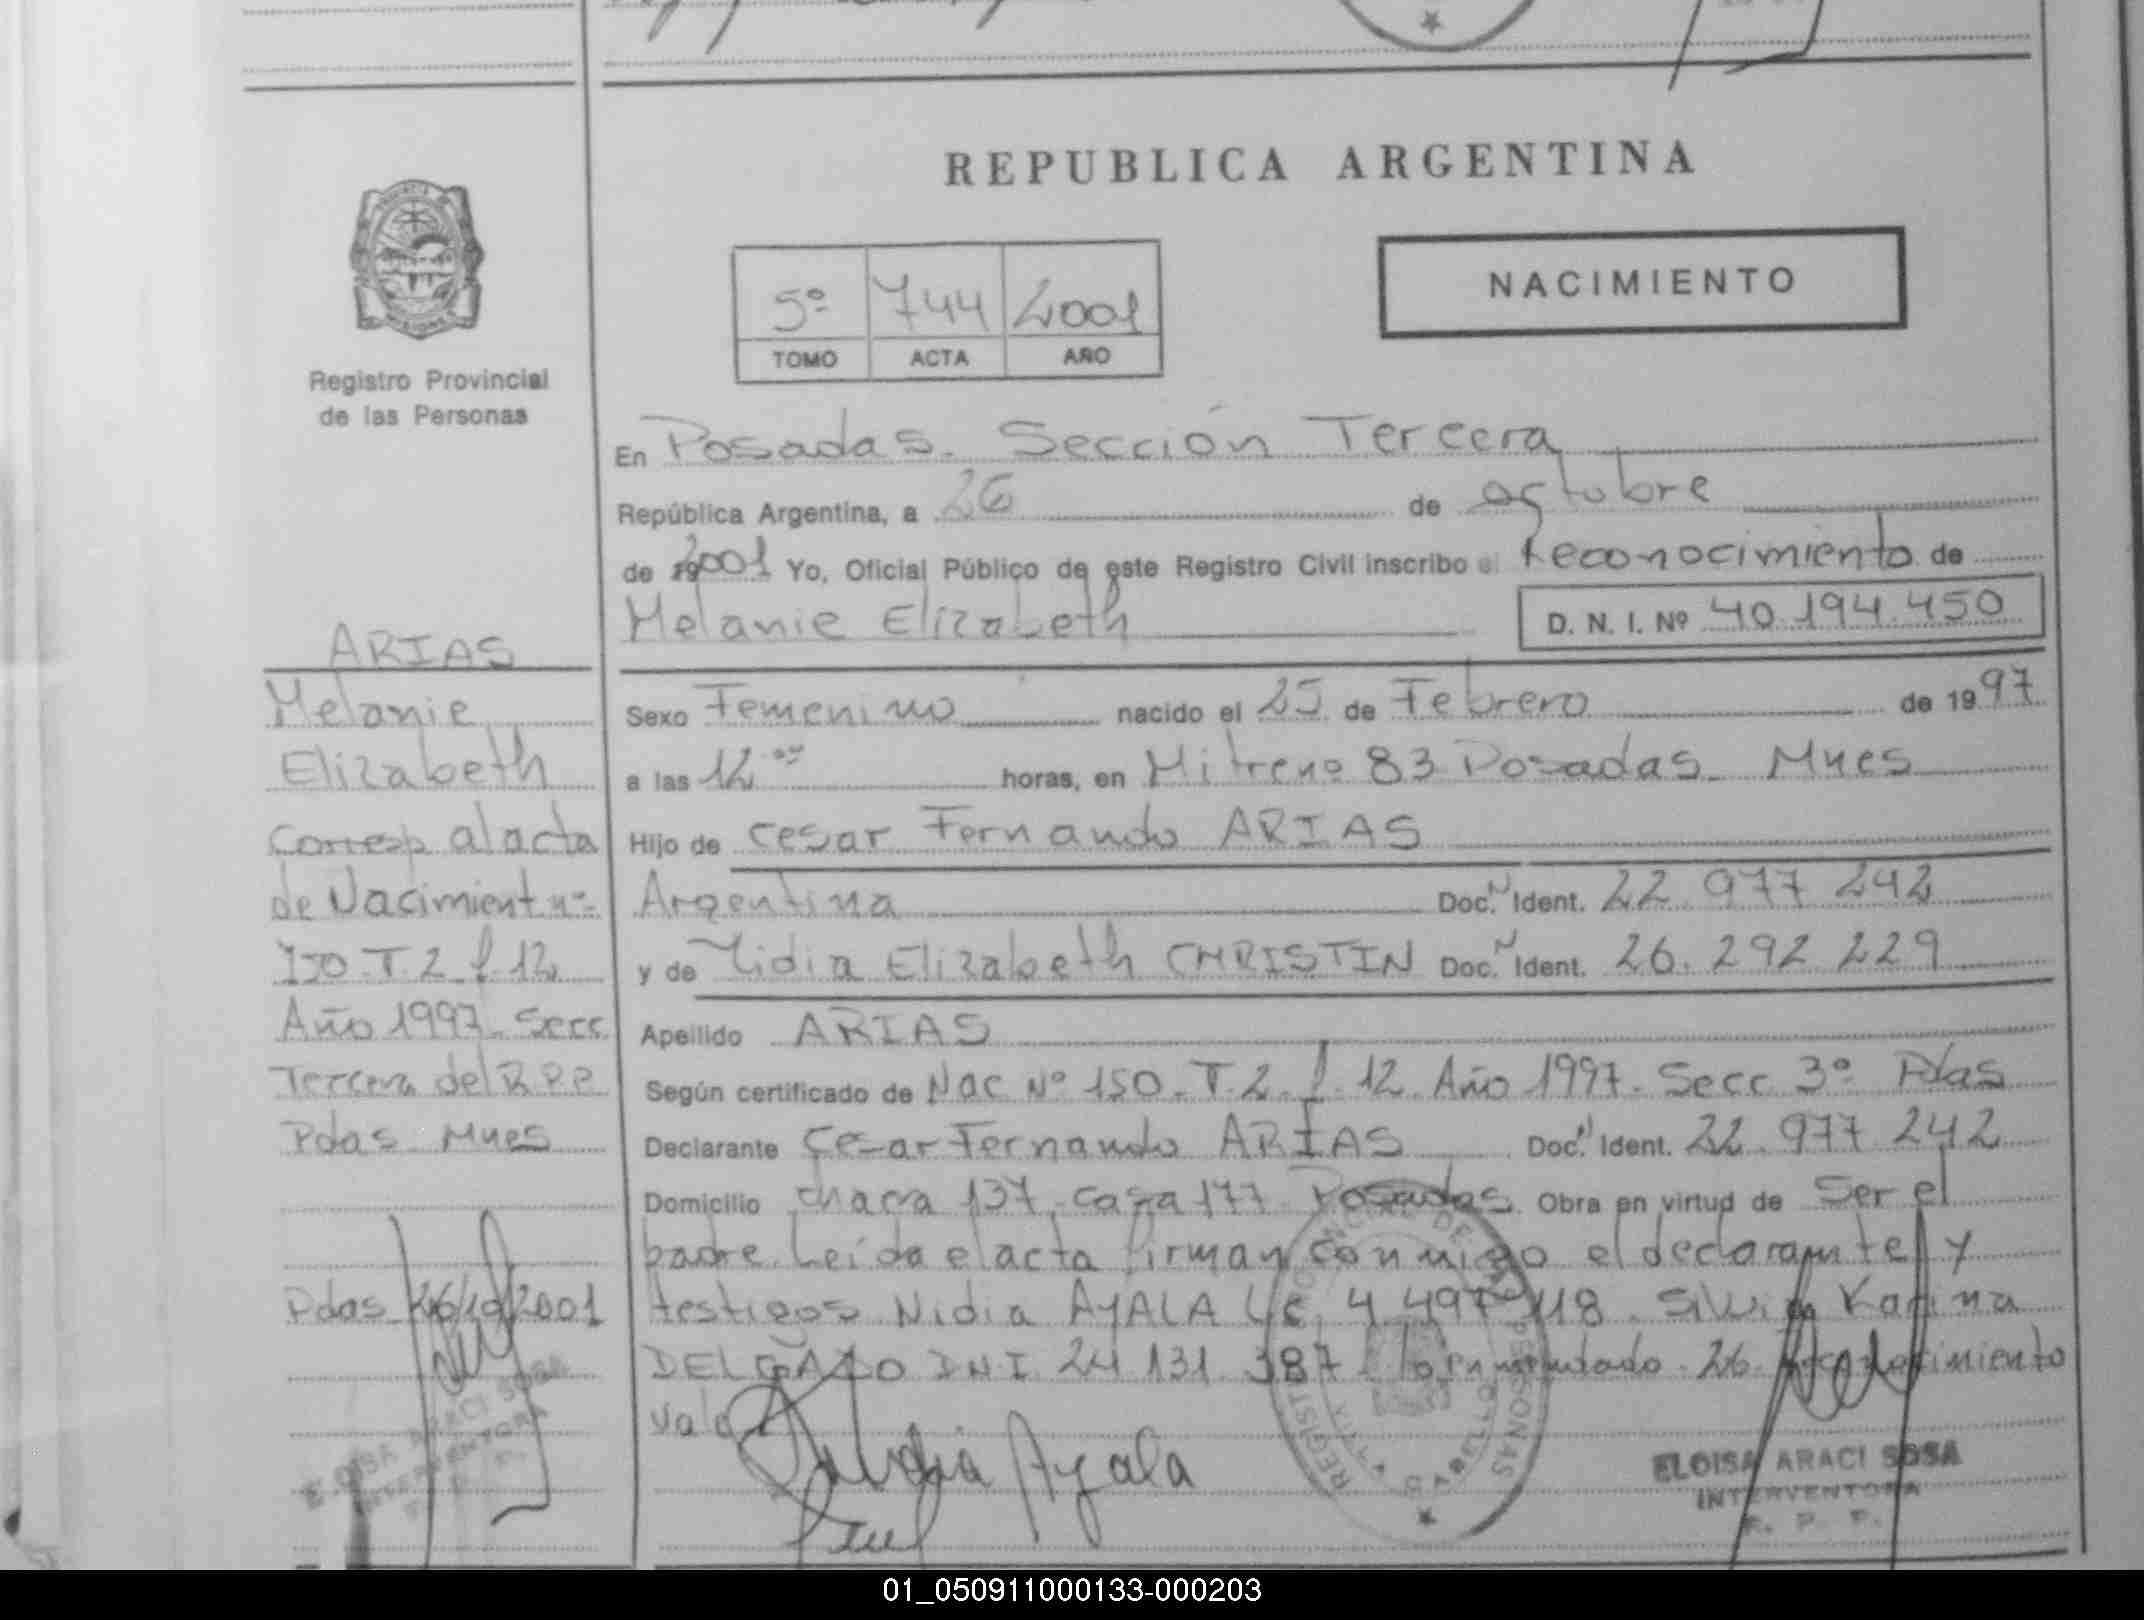 REPUBLICA ARGENTINA
NACIMIENTO
5º 744 2001
TOMO ACTA AÑO
Registro Provincial
de las Personas
En Posadas. Sección Tercera
República Argentina, a 26 de octubre
de 2001 Yo, Oficial Público de este Registro Civil inscribo el Reconocimiento de
Melanie Elizabeth D. N. I. Nº 40.194.450
Sexo Femenino nacido el 25 de Febrero de 1997
a las 12 horas, en Mitre nº 83 Posadas. Mnes
Hijo de Cesar Fernando ARIAS
Argentina Doc. N Ident. 22.977 242
y de Lidia Elizabeth CHRISTIN Doc. N Ident. 26.292 229
Apellido ARIAS
Según certificado de Nac Nº 150. T. 2. f. 12. Año 1997. Secc 3º Pdas
Declarante Cesar Fernando ARIAS Doc. N Ident. 22.977 242
Domicilio chacra 137. casa 177 Posadas. Obra en virtud de Ser el
padre. Leída el acta firman conmigo el declarante y
testigos Nidia AYALA LC. 4.497 118. Silvia Karina
DELGADO D.N.I. 24 131 387. Lo enmendado. 26. Reconocimiento
Vale
Nidia Ayala
ELOISA ARACI SOSA
INTERVENTORA
R. P. P.
ARIAS
Melanie
Elizabeth
Corresp. al acta
de Nacimient nº
150. T. 2 f. 12
Año 1997. Secc
Tercera del R.P.P.
Pdas Mnes
Pdas 26/10/2001
ELOISA ARACI SOSA
INTERVENTORA
01_050911000133-000203